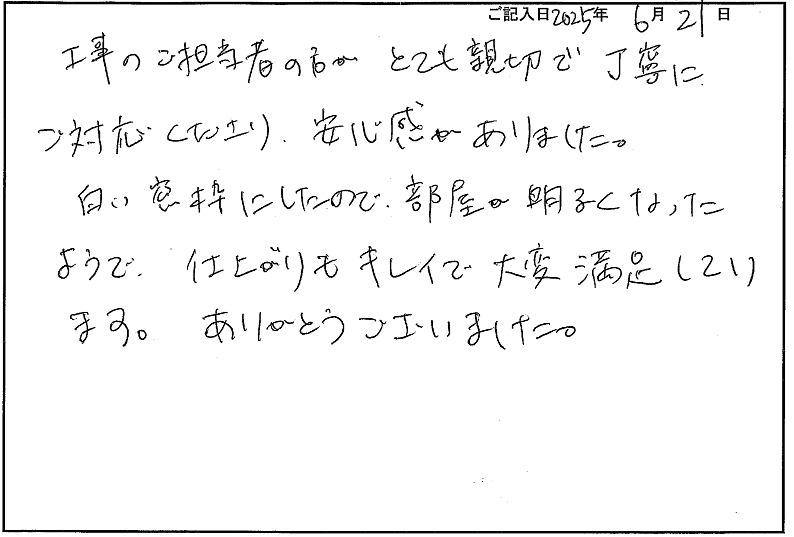 ご記入日2025年 6月 21日
工事のご担当者の方が とても親切で 丁寧に
ご対応くださり、安心感がありました。
白い窓枠にしたので、部屋が明るくなった
ようで、仕上がりもキレイで 大変満足してい
ます。 ありがとうございました。